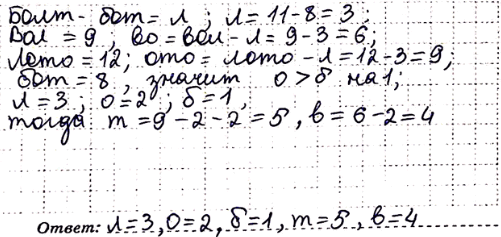 Болт - бот = л ; л = 11 - 8 = 3 ;
Вол = 9 ; во = вол - л = 9 - 3 = 6 ;
Лото = 12 ; ото = лото - л = 12 - 3 = 9 ,
бот = 8 , значит о > б на 1 ;
л = 3 , о = 2 , б = 1 ,
тогда т = 9 - 2 - 2 = 5 , в = 6 - 2 = 4
Ответ: л = 3 , о = 2 , б = 1 , т = 5 , в = 4